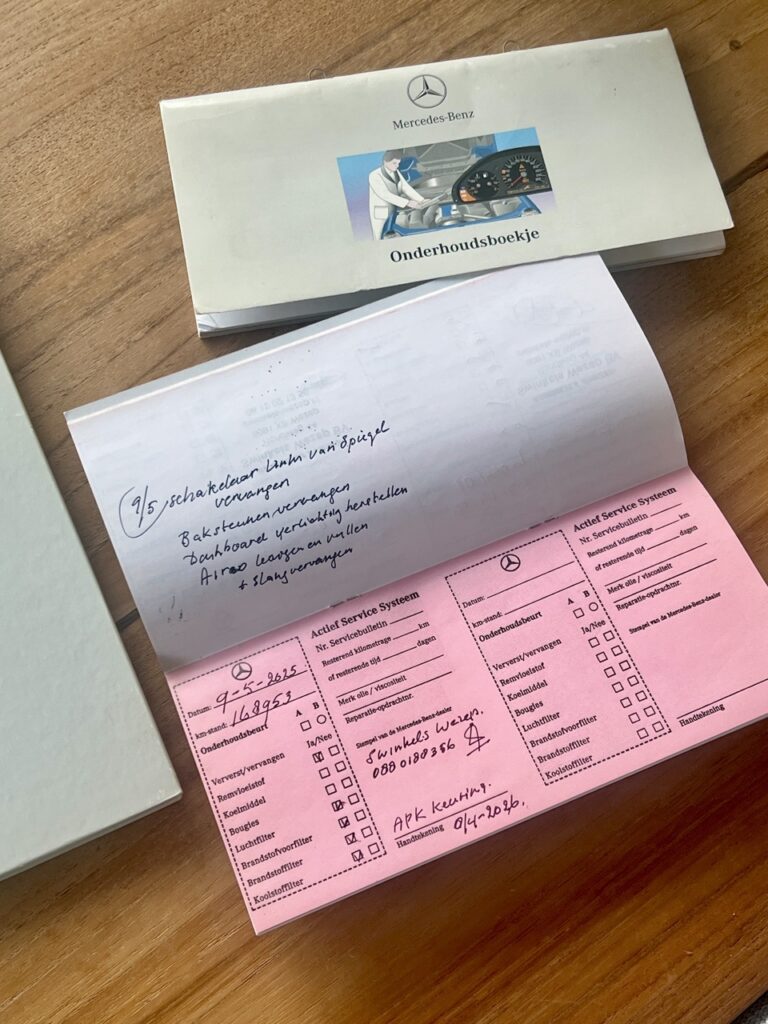 Mercedes-Benz
Onderhoudsboekje
9/5 schakelaar links van Spiegel
vervangen
Baksteunen vervangen
Dashboard verlichting herstellen
Airco leegen en vullen
+ slang vervangen
Datum: 9-5-2025
km-stand: 168953
Onderhoudsbeurt A B
Ja/Nee
Ververst/vervangen
Remvloeistof
Koelmiddel
Bougies
Luchtfilter
Brandstofvoorfilter
Brandstoffilter
Koolstoffilter
Actief Service Systeem
Nr. Servicebulletin
Resterend kilometrage km
of resterende tijd dagen
Merk olie / viscositeit
Reparatie-opdrachtnr.
Stempel van de Mercedes-Benz-dealer
Swinkels
APK Keuring.
Handtekening
Datum:
km-stand:
Onderhoudsbeurt A B
Ja/Nee
Ververst/vervangen
Remvloeistof
Koelmiddel
Bougies
Luchtfilter
Brandstofvoorfilter
Brandstoffilter
Koolstoffilter
Actief Service Systeem
Nr. Servicebulletin
Resterend kilometrage km
of resterende tijd dagen
Merk olie / viscositeit
Reparatie-opdrachtnr.
Stempel van de Mercedes-Benz-dealer
Handtekening